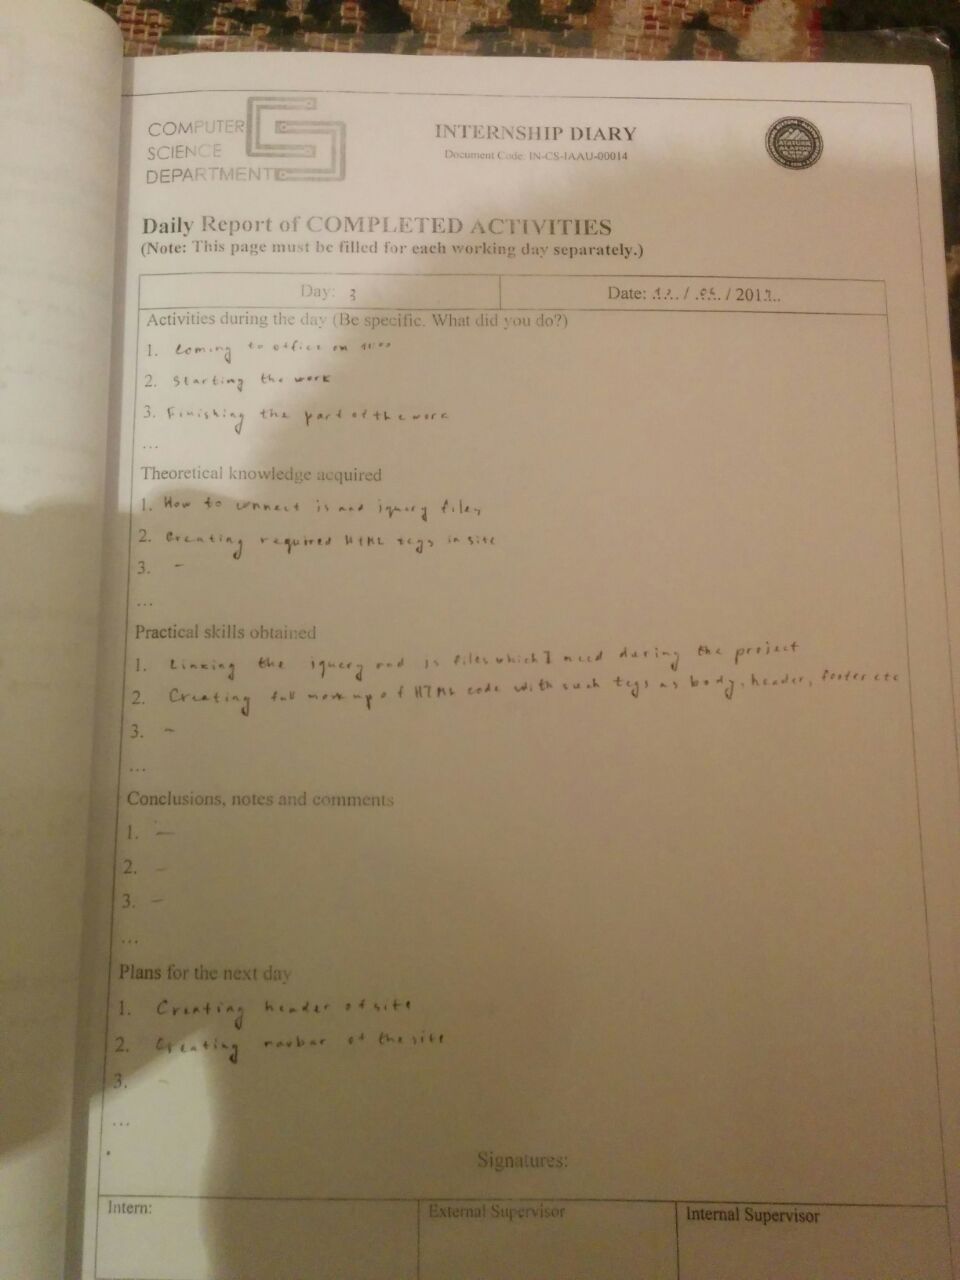 COMPUTER
SCIENCE
DEPARTMENT
INTERNSHIP DIARY
Document Code: IN-CS-IAAU-00014
Daily Report of COMPLETED ACTIVITIES
(Note: This page must be filled for each working day separately.)
Day: 3
Date: / / 201
Activities during the day (Be specific. What did you do?)
1. Coming to office on
2. Starting the work
3. Finishing the part of the work
...
Theoretical knowledge acquired
1. How to connect js and jquery files
2. Creating required HTML tegs in site
3. -
...
Practical skills obtained
1. Linking the jquery and js files which I need during the project
2. Creating full mork up of HTML code with such tegs as body, header, footer etc
3. -
...
Conclusions, notes and comments
1. -
2. -
3. -
...
Plans for the next day
1. Creating header of site
2. Creating navbar of the site
3. -
...
Signatures:
Intern:
External Supervisor
Internal Supervisor